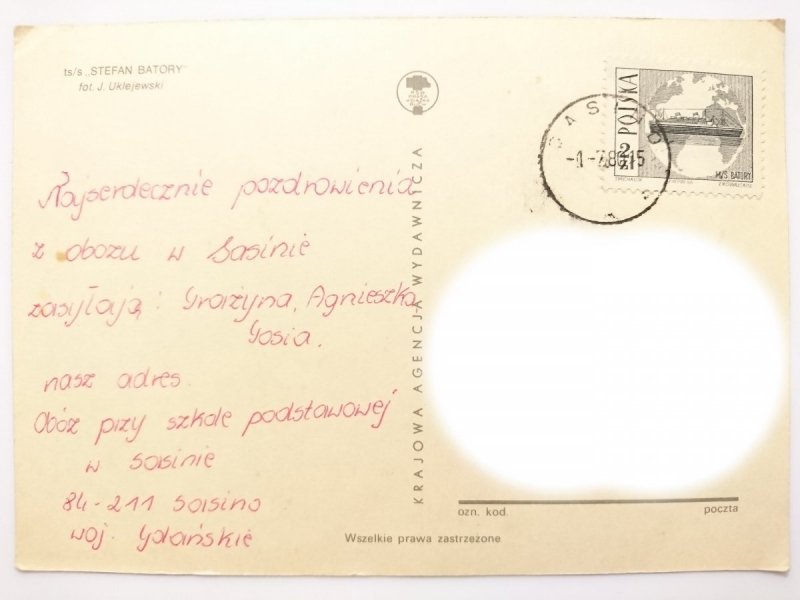 ts/s „STEFAN BATORY"
fot. J. Uklejewski
Najserdecznie pozdrowienia
z obozu w Sasinie
zasyłają: Grażyna, Agnieszka,
Gosia.
nasz adres.
Obóz przy szkole podstawowej
w Sasinie
84-211 Sasino
woj. Gdańskie
KRAJOWA AGENCJA WYDAWNICZA
Wszelkie prawa zastrzeżone
SASINO
-1-7.80.15
2 ZŁ POLSKA
M/S BATORY
ozn. kod.
poczta